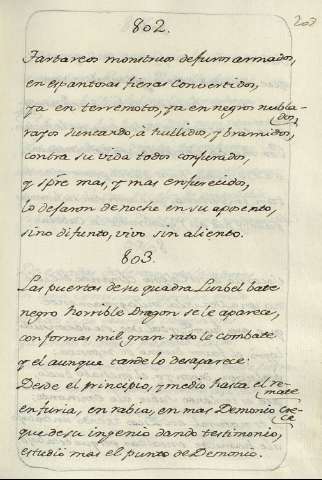 802.
203
Tartareos monstruos de furor armados,
en espantosas fieras convertidos,
ya en terremotos, ya en negros nubla-
dos,
rayos juntando, à hullidos, y bramidos,
contra su vida todos conjurados,
y spre mas, y mas enfurecidos,
lo dejaron de noche en su aposento,
sino difunto, vivo sin aliento.
803.
Las puertas de su quadra Luzbel bate
negro horrible Dragon se le aparece,
con formas mil gran rato le combate
y el aunque tarde lo desaparece:
Desde el principio, y medio hasta el re-
mate
en furia, en rabia, en mas Demonio cre-
ce
que de su ingenio dando testimonio,
estudió mas el punto de Demonio.